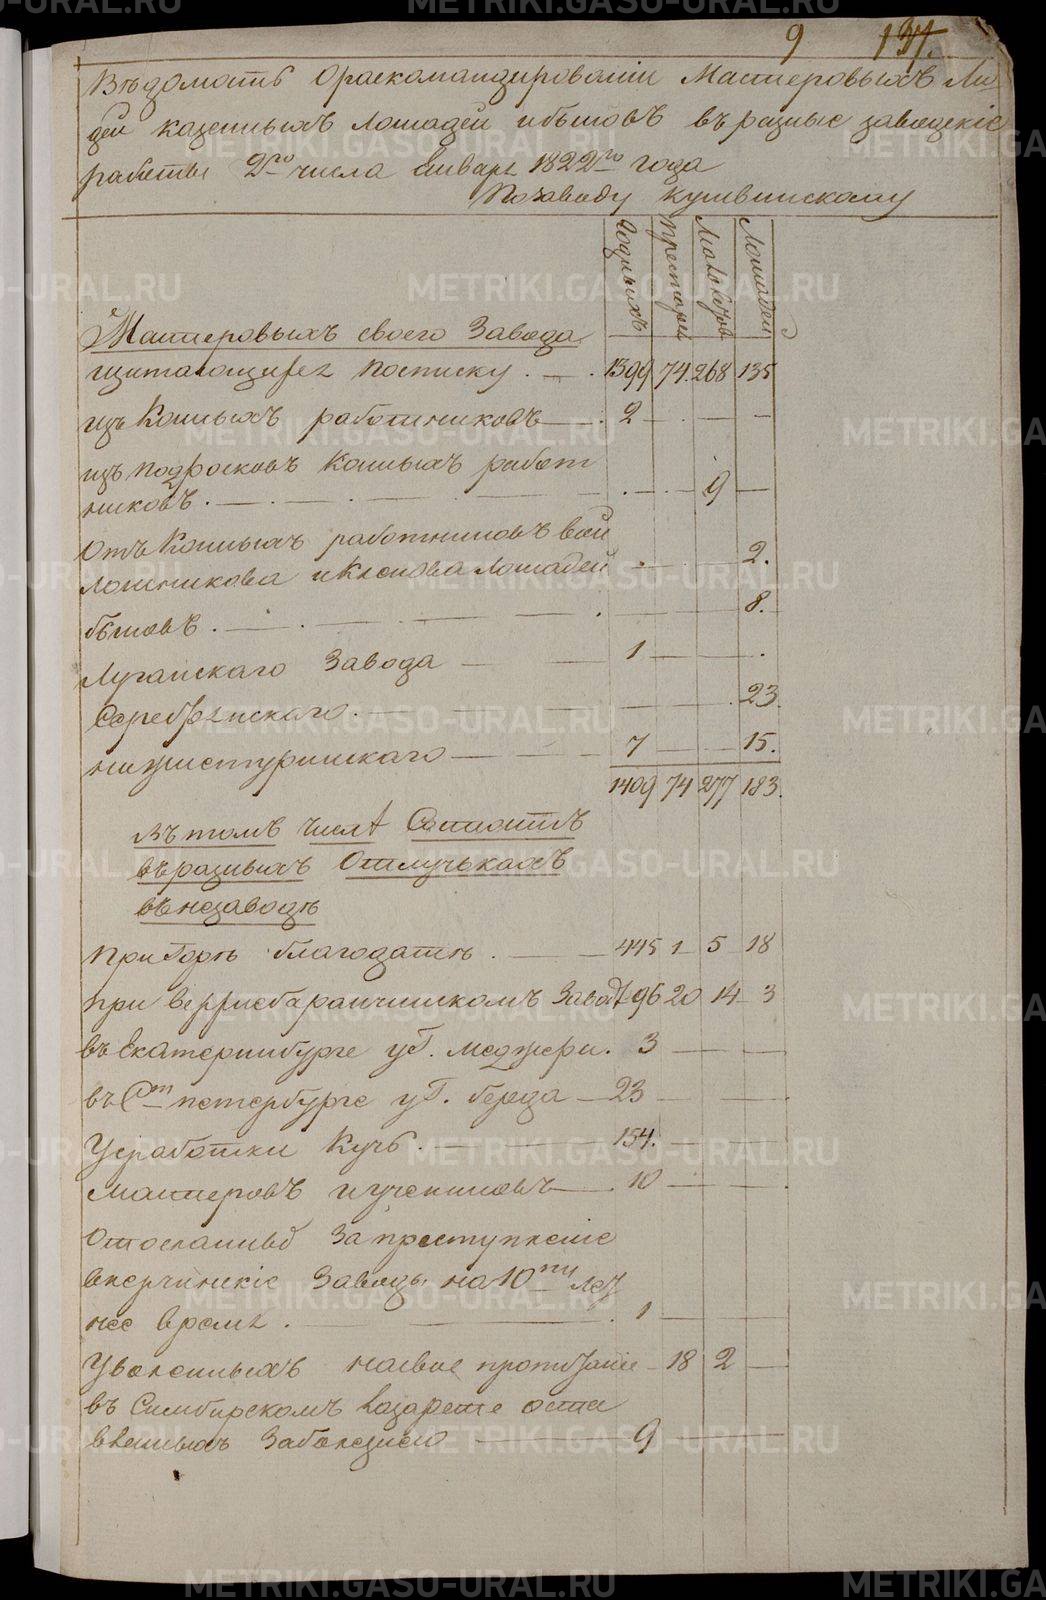 9 134
Вѣдомость Ораскомандированіи Мастеровыхъ Лю
дей казенныхъ лошадей ибыковъ въразные заводскіе
работы 2го числа Января 1822го года
Позаводу Кушвинскому
Годныхъ Престаре Малолѣтов Лошадей
Мастеровыхъ своего Завода
щитающихся Посписку 1399 74 268 135
изъ Конныхъ работниковъ 2
изъ подросковъ Конныхъ работ
никовъ 9
Отъ Конныхъ работниковъ
и Лошадей 2.
быковъ 8.
Луганскаго Завода 1
Серебрянскаго 23
нижнетуринскаго 7 15.
1409 74 277 183.
Въ томъ числѣ Состоитъ
въразныхъ Отлучькахъ
внѣзаводѣ
При Горѣ благодатѣ 445 1 5 18
при верхнебаранчинскомъ Заводѣ 96 20 14 3
въ Екатеринбурге уГ. Меджера. 3
въ Ст петербурге уГ. берда 23
Уработки Кучь 154.
Мастеровъ иучениковъ 10
Отосланный Запреступленіе
внерчинскіе Заводы на10ти лет
нее время 1
Уволенныхъ насвое пропитаніе 18 2
въ Симбирскомъ Лазарете оста
вленныхъ Заболезнею 9
METRIKI.GASO-URAL.RU